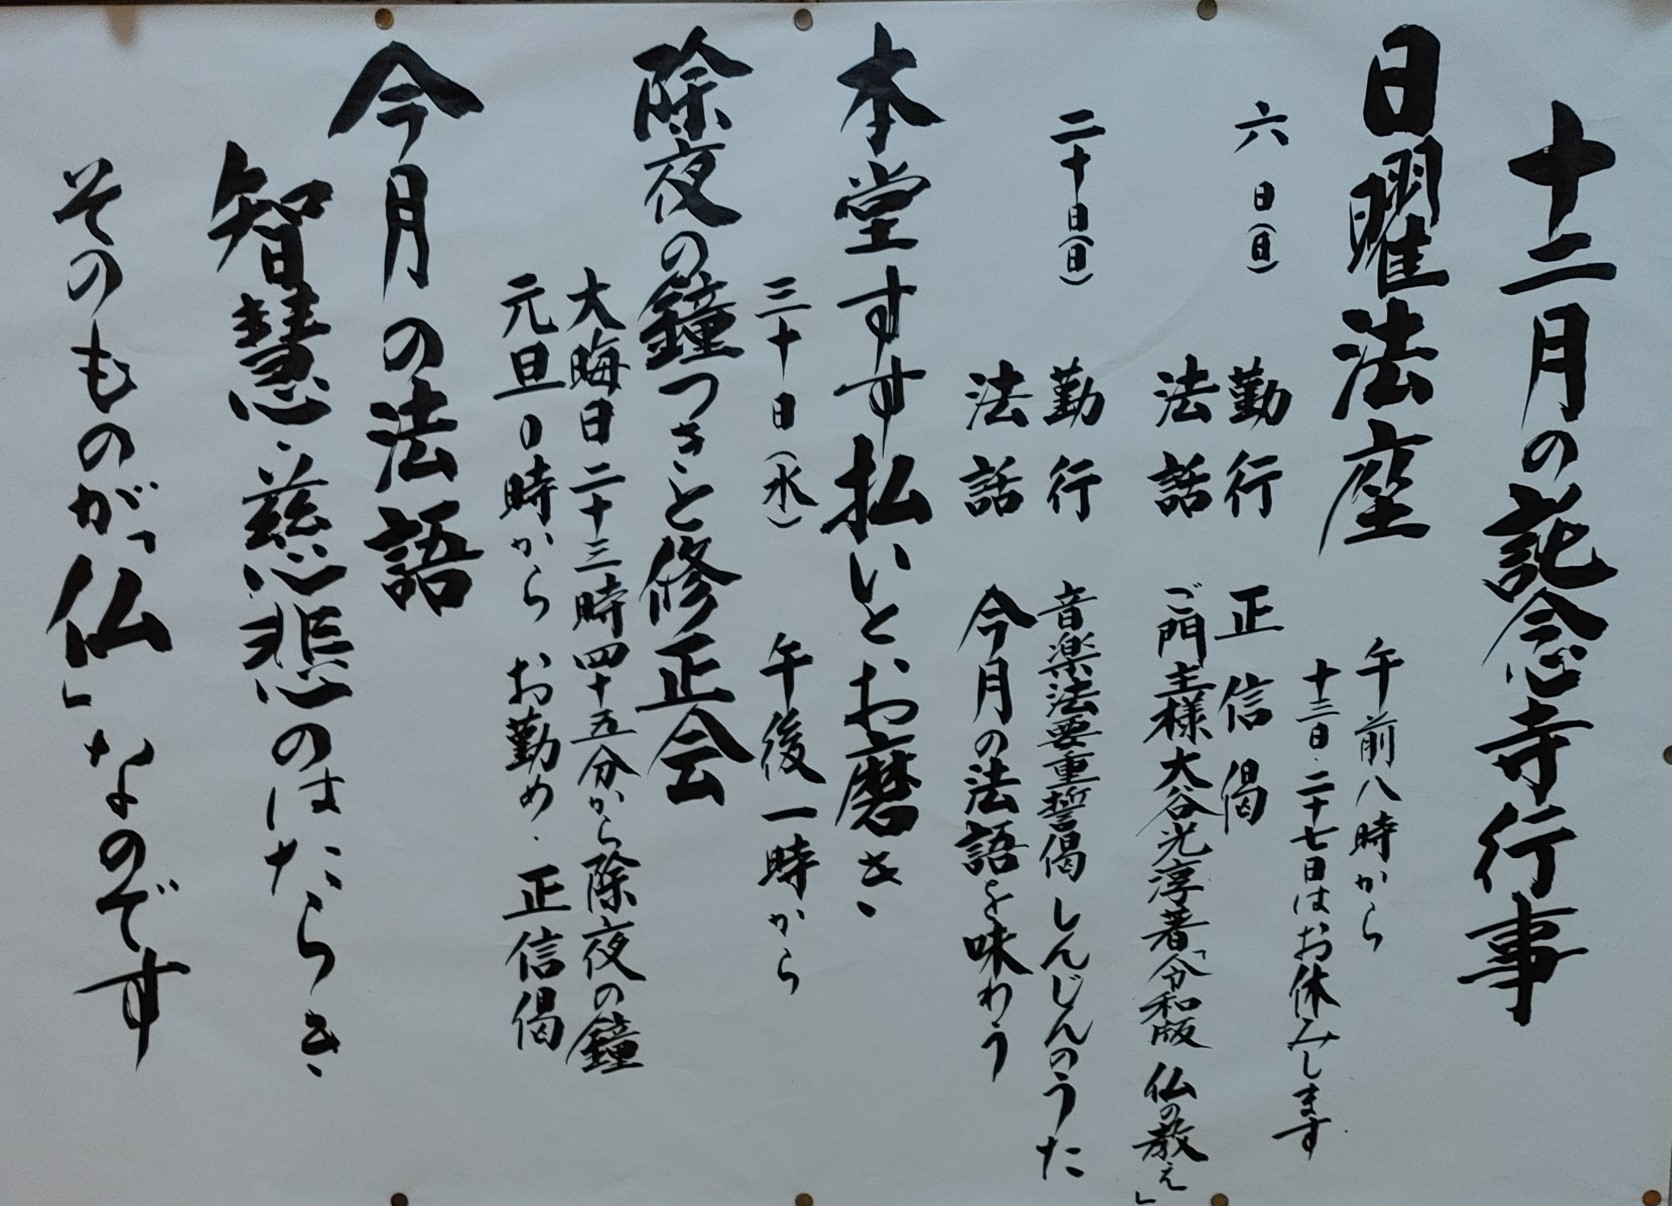 十二月の託念寺行事
日曜法座
午前八時から
十三日・二十七日はお休みします
六日(日)
勤行 正信偈
法話 ご門主様大谷光淳著「令和版 仏の教え」
二十日(日)
勤行 音楽法要重誓偈 しんじんのうた
法話 今月の法語を味わう
本堂すす払いとお磨き
三十日(水) 午後一時から
除夜の鐘つきと修正会
大晦日 二十三時四十五分から除夜の鐘
元旦0時から お勤め・正信偈
今月の法語
智慧・慈悲のはたらき
そのものが「仏」なのです